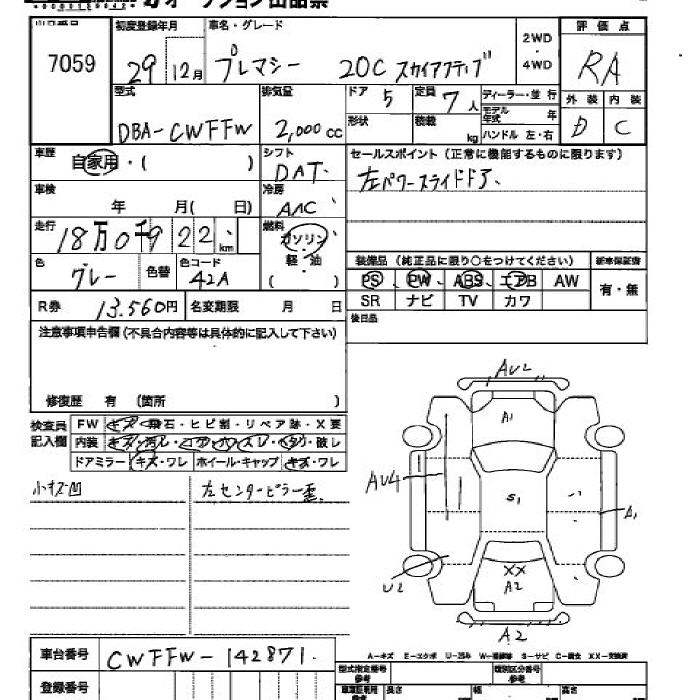 オークション出品票
7059
初度登録年月
29年12月
車名・グレード
プレマシー 20C スカイアクティブ
2WD・4WD
評価点
RA
外装 内装
D C
型式
DBA-CWFFW
排気量
2,000cc
ドア 5
定員 7人
形状
積載 kg
ディーラー・並行
モデル年式 年
ハンドル 左・右
車歴
自家用・( )
シフト
DAT
セールスポイント(正常に機能するものに限ります)
左パワースライドドア、
車検
年 月( 日)
冷房
AAC
走行
18万0千922km
燃料
ガソリン
軽・油
( )
色
グレー
色替
色コード
42A
装備品(純正品に限り○をつけてください)
新車保証書
PS PW ABS エアB AW
有・無
SR ナビ TV カワ
R券 13.560円
名変期限 月 日
後日品
注意事項申告欄(不具合内容等は具体的に記入して下さい)
修復歴 有(箇所 )
検査員記入欄
FW キズ・飛石・ヒビ割・リペア跡・X要
内装
ドアミラー キズ・ワレ ホイール・キャップ キズ・ワレ
小キズ凹
左センターピラー歪
AU2
A1
AU4
S1
A1
XX
A2
U2
A2
A-キズ E-エクボ
車台番号
CWFFW-142871
登録番号
型式指定番号
参考
類別区分番号
参考
長さ
幅
高さ